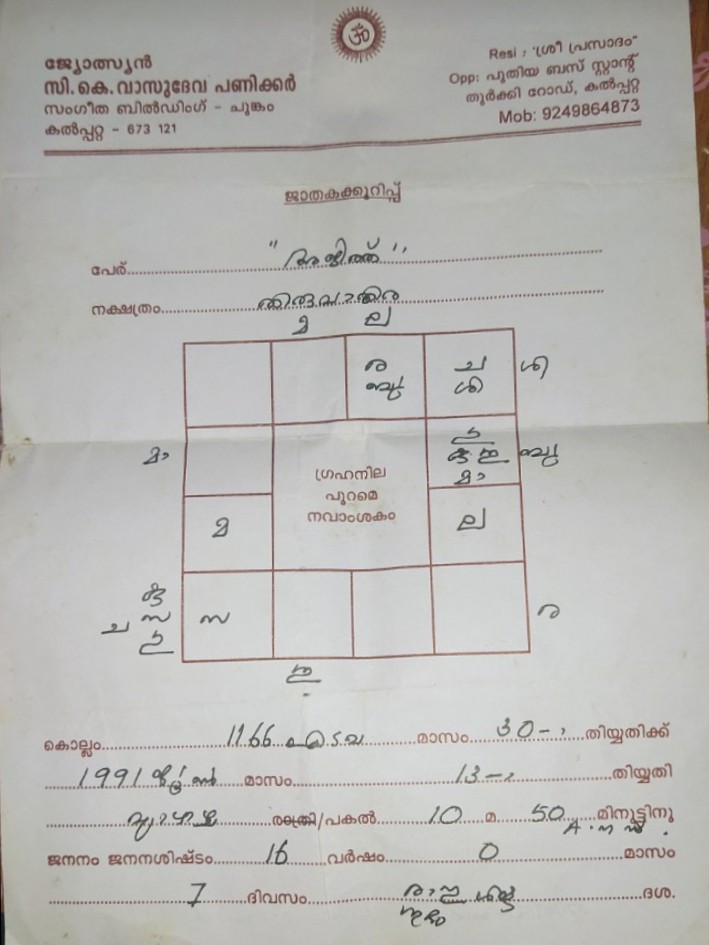 ॐ
ജ്യോത്സ്യൻ
സി.കെ.വാസുദേവ പണിക്കർ
സംഗീത ബിൽഡിംഗ് - ചുങ്കം
കൽപ്പറ്റ - 673 121
Resi : "ശ്രീ പ്രസാദം"
Opp: പുതിയ ബസ് സ്റ്റാന്റ്
തുർക്കി റോഡ്, കൽപ്പറ്റ
Mob: 9249864873
ജാതകക്കുറിപ്പ്
പേര്..... "അജിത്ത്"
നക്ഷത്രം..... തിരുവാതിര
മ ല
ര ച ശി
ബു ശി
മാ കു ബു
മാ
ഗ്രഹനില
പുറമെ
നവാംശകം
മ ല
കു
ച സ സ ര
കൊല്ലം..... 1166 എടവ .....മാസം..... 30- .....തിയ്യതിക്ക്
1991 ജൂൺ .....മാസം..... 13- .....തിയ്യതി
വ്യാഴാഴ്ച .....രാത്രി/പകൽ..... 10 .....മ..... 50 .....മിനുട്ടിനു
ജനനം ജനനശിഷ്ടം..... 16 .....വർഷം..... 0 .....മാസം
7 .....ദിവസം..... രാഹു .....ദശ.